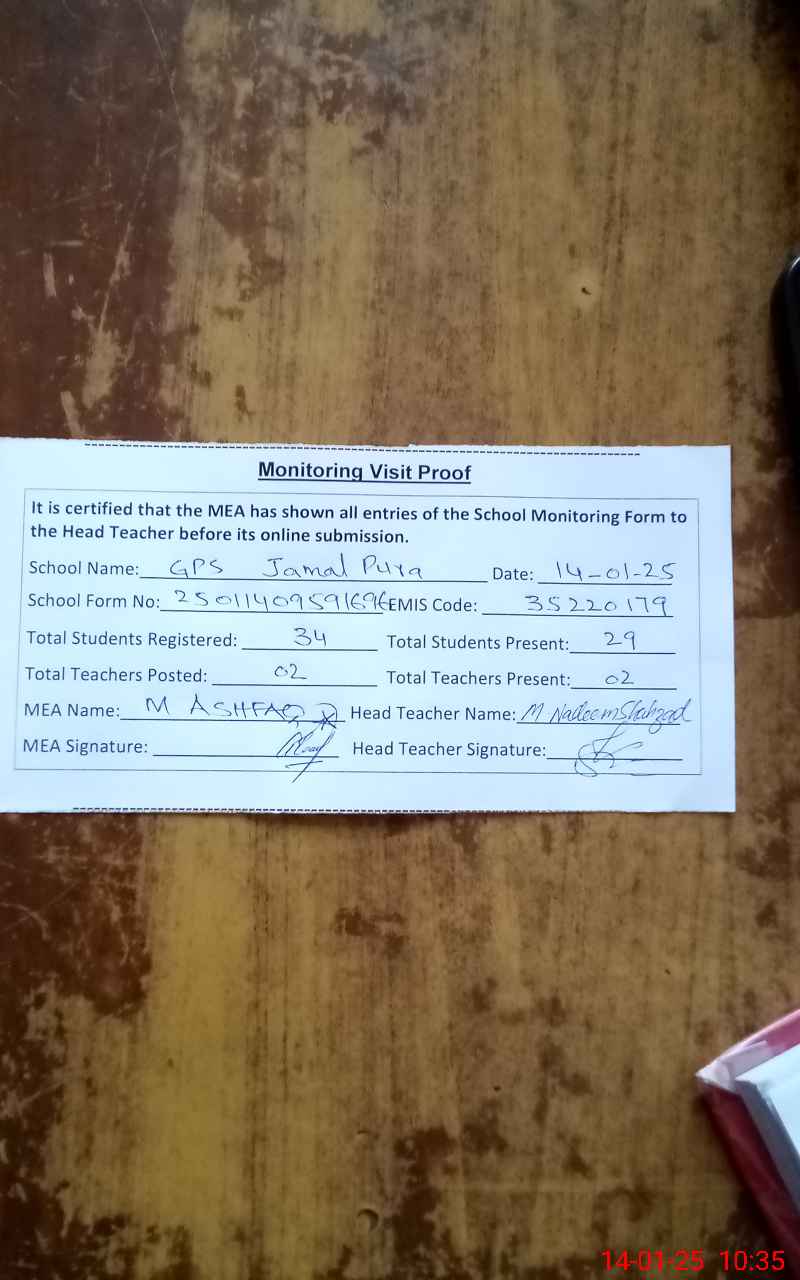 Monitoring Visit Proof
It is certified that the MEA has shown all entries of the School Monitoring Form to
the Head Teacher before its online submission.
School Name: GPS Jamal Pura Date: 14-01-25
School Form No: 25011409591696 EMIS Code: 35220179
Total Students Registered: 34 Total Students Present: 29
Total Teachers Posted: 02 Total Teachers Present: 02
MEA Name: M ASHFAQ Head Teacher Name: M Nadeem Shahzad
MEA Signature: Head Teacher Signature:
14-01-25 10:35